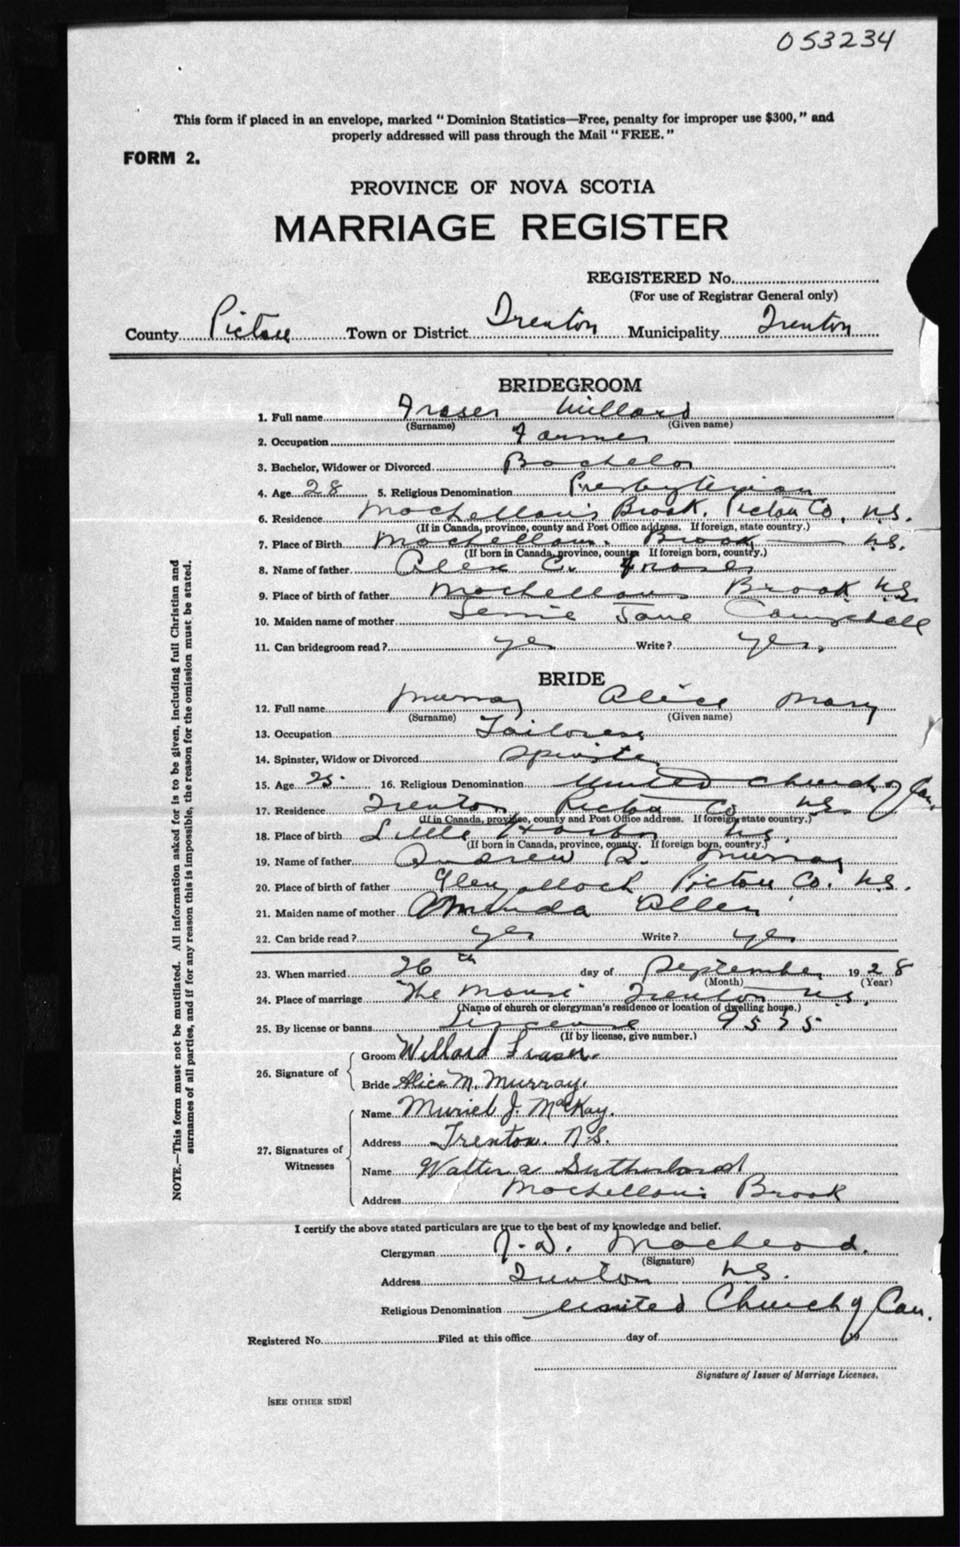 053234
This form if placed in an envelope, marked "Dominion Statistics—Free, penalty for improper use $300," and
properly addressed will pass through the Mail "FREE."
FORM 2.
PROVINCE OF NOVA SCOTIA
MARRIAGE REGISTER
REGISTERED No.
(For use of Registrar General only)
County Pictou Town or District Trenton Municipality Trenton
BRIDEGROOM
1. Full name Fraser Willard
(Surname) (Given name)
2. Occupation Farmer
3. Bachelor, Widower or Divorced Bachelor
4. Age 28 5. Religious Denomination Presbyterian
6. Residence MacLellan's Brook, Pictou Co. N.S.
(If in Canada, province, county and Post Office address. If foreign, state country.)
7. Place of Birth MacLellan's Brook N.S.
(If born in Canada, province, county If foreign born, country.)
8. Name of father Alex C. Fraser
9. Place of birth of father MacLellans Brook N.S.
10. Maiden name of mother Jane Campbell
11. Can bridegroom read? yes Write? yes.
BRIDE
12. Full name Murray Alice Mary
(Surname) (Given name)
13. Occupation Tailoress
14. Spinster, Widow or Divorced Spinster
15. Age 25. 16. Religious Denomination United Church of Can.
17. Residence Trenton Pictou Co NS
(If in Canada, province, county and Post Office address. If foreign, state country.)
18. Place of birth Little Harbor N.S.
(If born in Canada, province, county. If foreign born, country.)
19. Name of father Andrew R. Murray
20. Place of birth of father Glenfalloch Pictou Co. N.S.
21. Maiden name of mother Amanda Allen
22. Can bride read? yes Write? yes
23. When married 26th day of September 1928
(Month) (Year)
24. Place of marriage "The Manse" Trenton N.S.
(Name of church or clergyman's residence or location of dwelling house.)
25. By license or banns License 9575
(If by license, give number.)
26. Signature of
Groom Willard Fraser.
Bride Alice M. Murray.
27. Signatures of Witnesses
Name Muriel J. MacKay.
Address Trenton. N.S.
Name Walter A Sutherland
Address MacLellan's Brook
I certify the above stated particulars are true to the best of my knowledge and belief.
Clergyman MacLeod.
(Signature)
Address Trenton N.S.
Religious Denomination United Church of Can.
Registered No. Filed at this office day of
Signature of Issuer of Marriage Licenses.
[SEE OTHER SIDE]
NOTE.—This form must not be mutilated. All information asked for is to be given, including full Christian and
surnames of all parties, and if for any reason this is impossible, the reason for the omission must be stated.